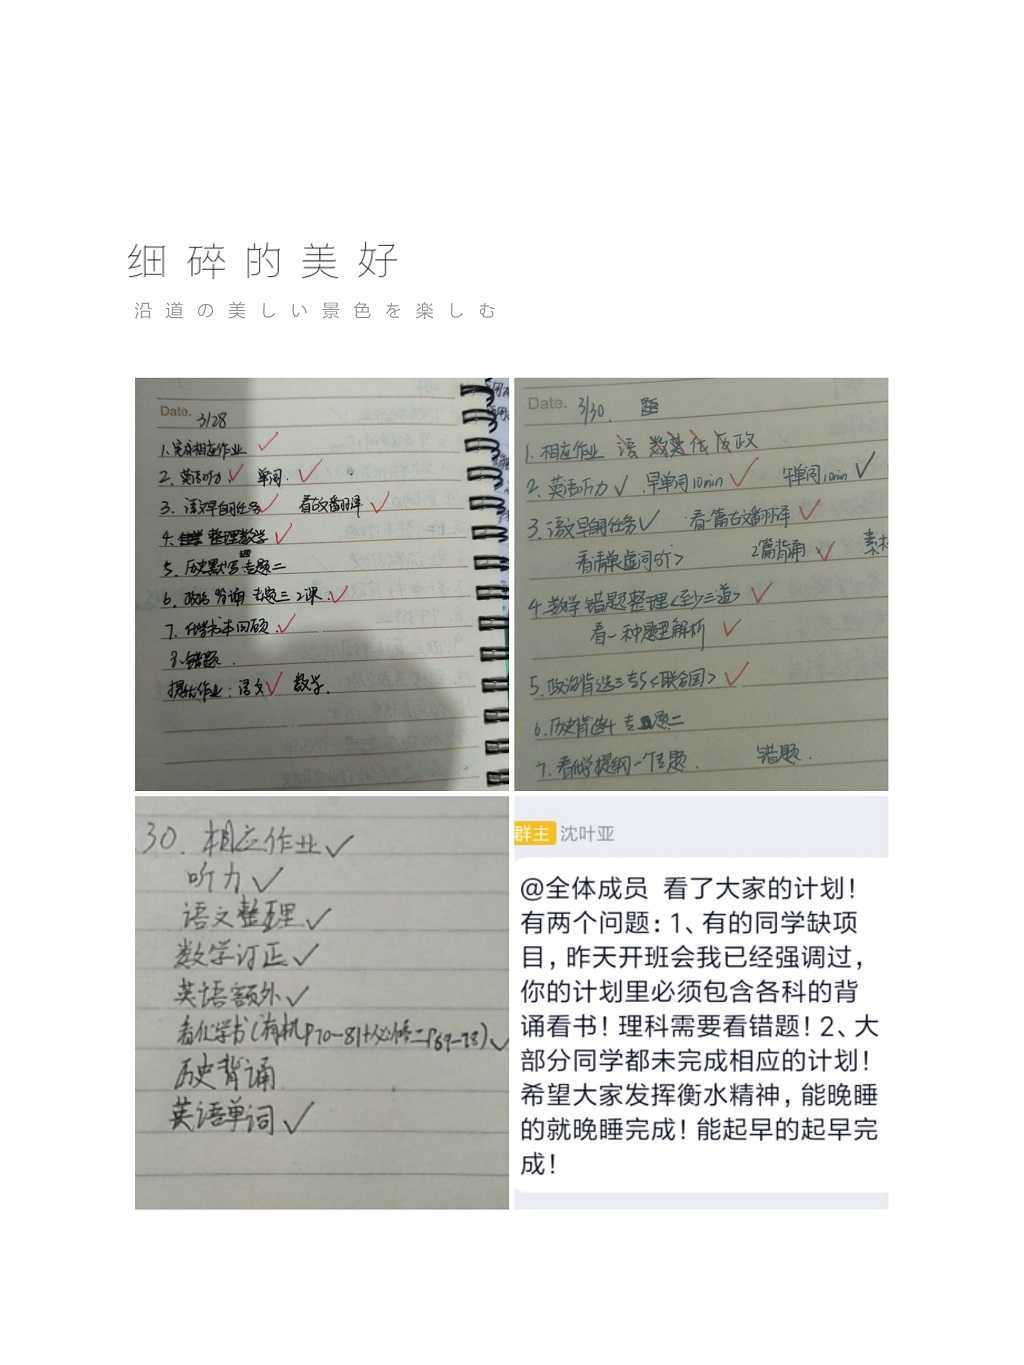 细碎的美好
沿道の美しい景色を楽しむ
Date. 3/28
1.完成相应作业 ✓
2.英语听力 ✓ 单词. ✓
3.语文早自习任务 ✓ 看古文翻译 ✓
4. 整理数学 ✓
5.历史默写 专题二
6.政治背诵 专题三 2课. ✓
7.化学书本回顾. ✓
8.错题.
提优作业:语文 ✓ 数学.
Date. 3/30.
1.相应作业 语 数 英 化 历 政
2.英语听力 ✓ 早单词10min ✓ 午单词10min ✓
3.语文早自习任务 ✓ 看一篇古文翻译 ✓
2篇背诵 ✓ 素材
4.数学错题整理<至少三道> ✓
看一种题型解析 ✓
5.政治背选三专5<联合国> ✓
6.历史背 专题二
7.看化学提纲一个专题. 错题.
30. 相应作业 ✓
听力 ✓
语文整理 ✓
数学订正 ✓
英语额外 ✓
看化学书(有机P70-81+必修二P69-78) ✓
历史背诵
英语单词 ✓
群主 沈叶亚
@全体成员 看了大家的计划!
有两个问题:1、有的同学缺项
目,昨天开班会我已经强调过,
你的计划里必须包含各科的背
诵看书!理科需要看错题!2、大
部分同学都未完成相应的计划!
希望大家发挥衡水精神,能晚睡
的就晚睡完成!能起早的起早完
成!